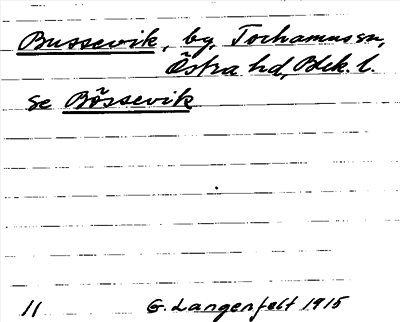 Bussevik, by, Torhamns sn,
Östra hd, Blek. l.
se Bössevik
11 G. Langenfelt 1915